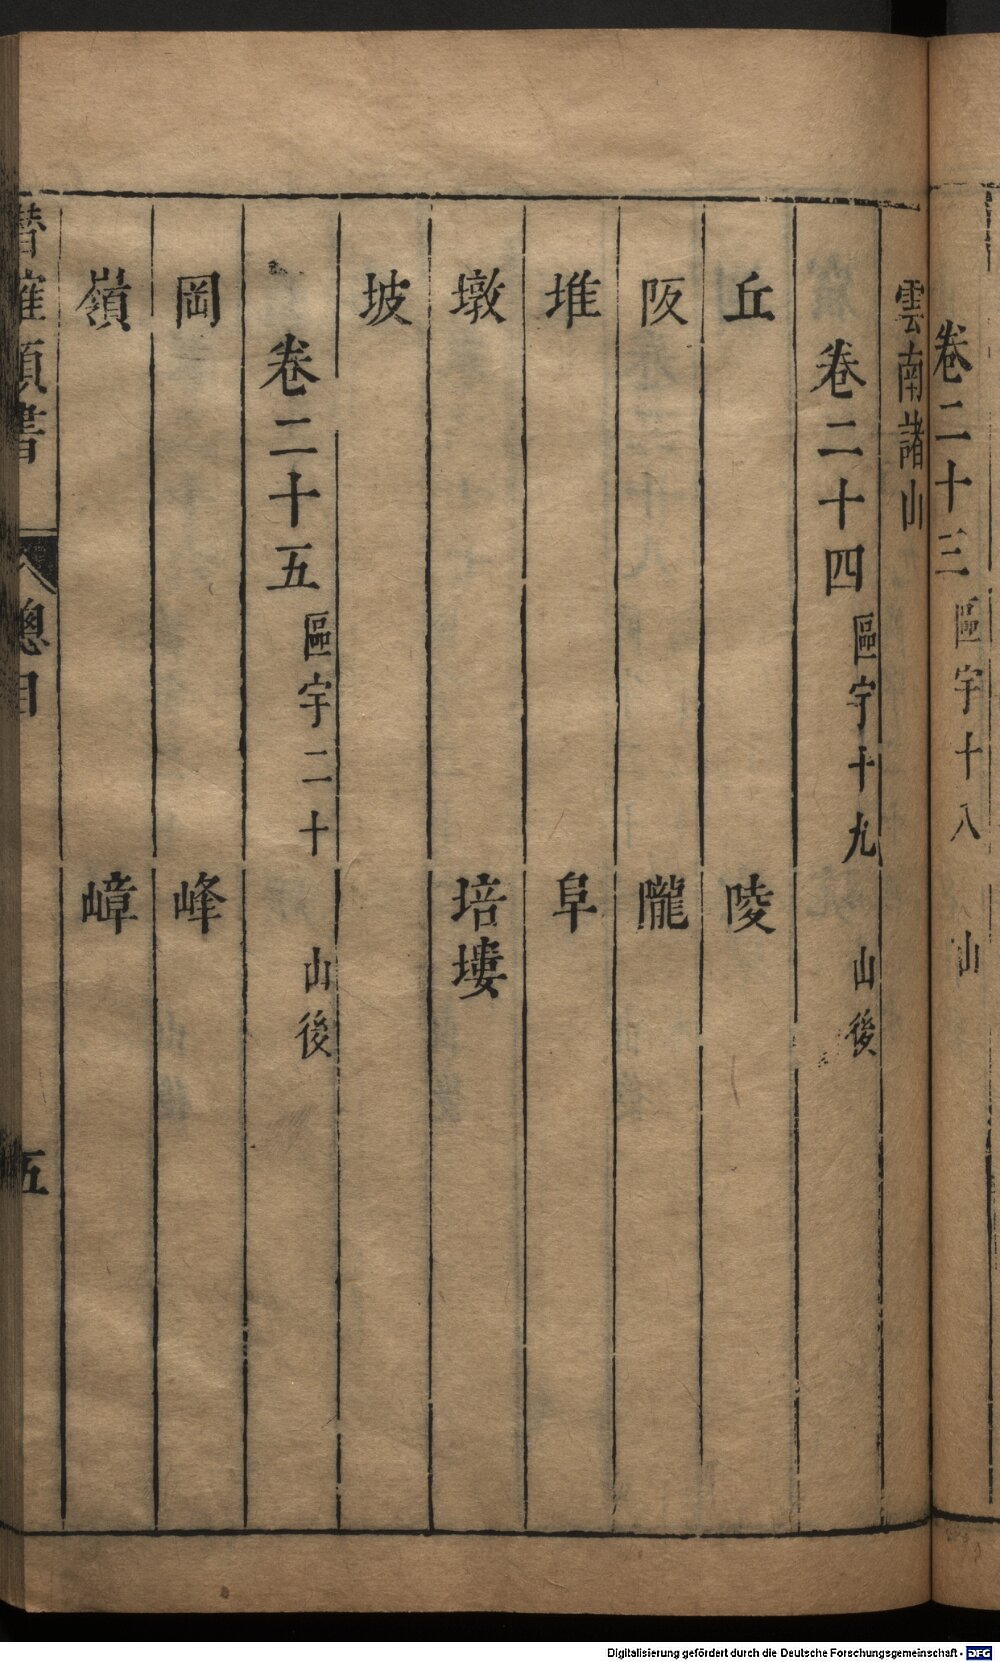 卷二十三 區宇十八 山
雲南諸山
卷二十四 區宇十九 山後
丘 陵
阪 隴
堆 阜
墩 培塿
坡
卷二十五 區宇二十 山後
岡 峰
嶺 嶂
潛確類書 總目 五
Digitalisierung gefördert durch die Deutsche Forschungsgemeinschaft - DFG